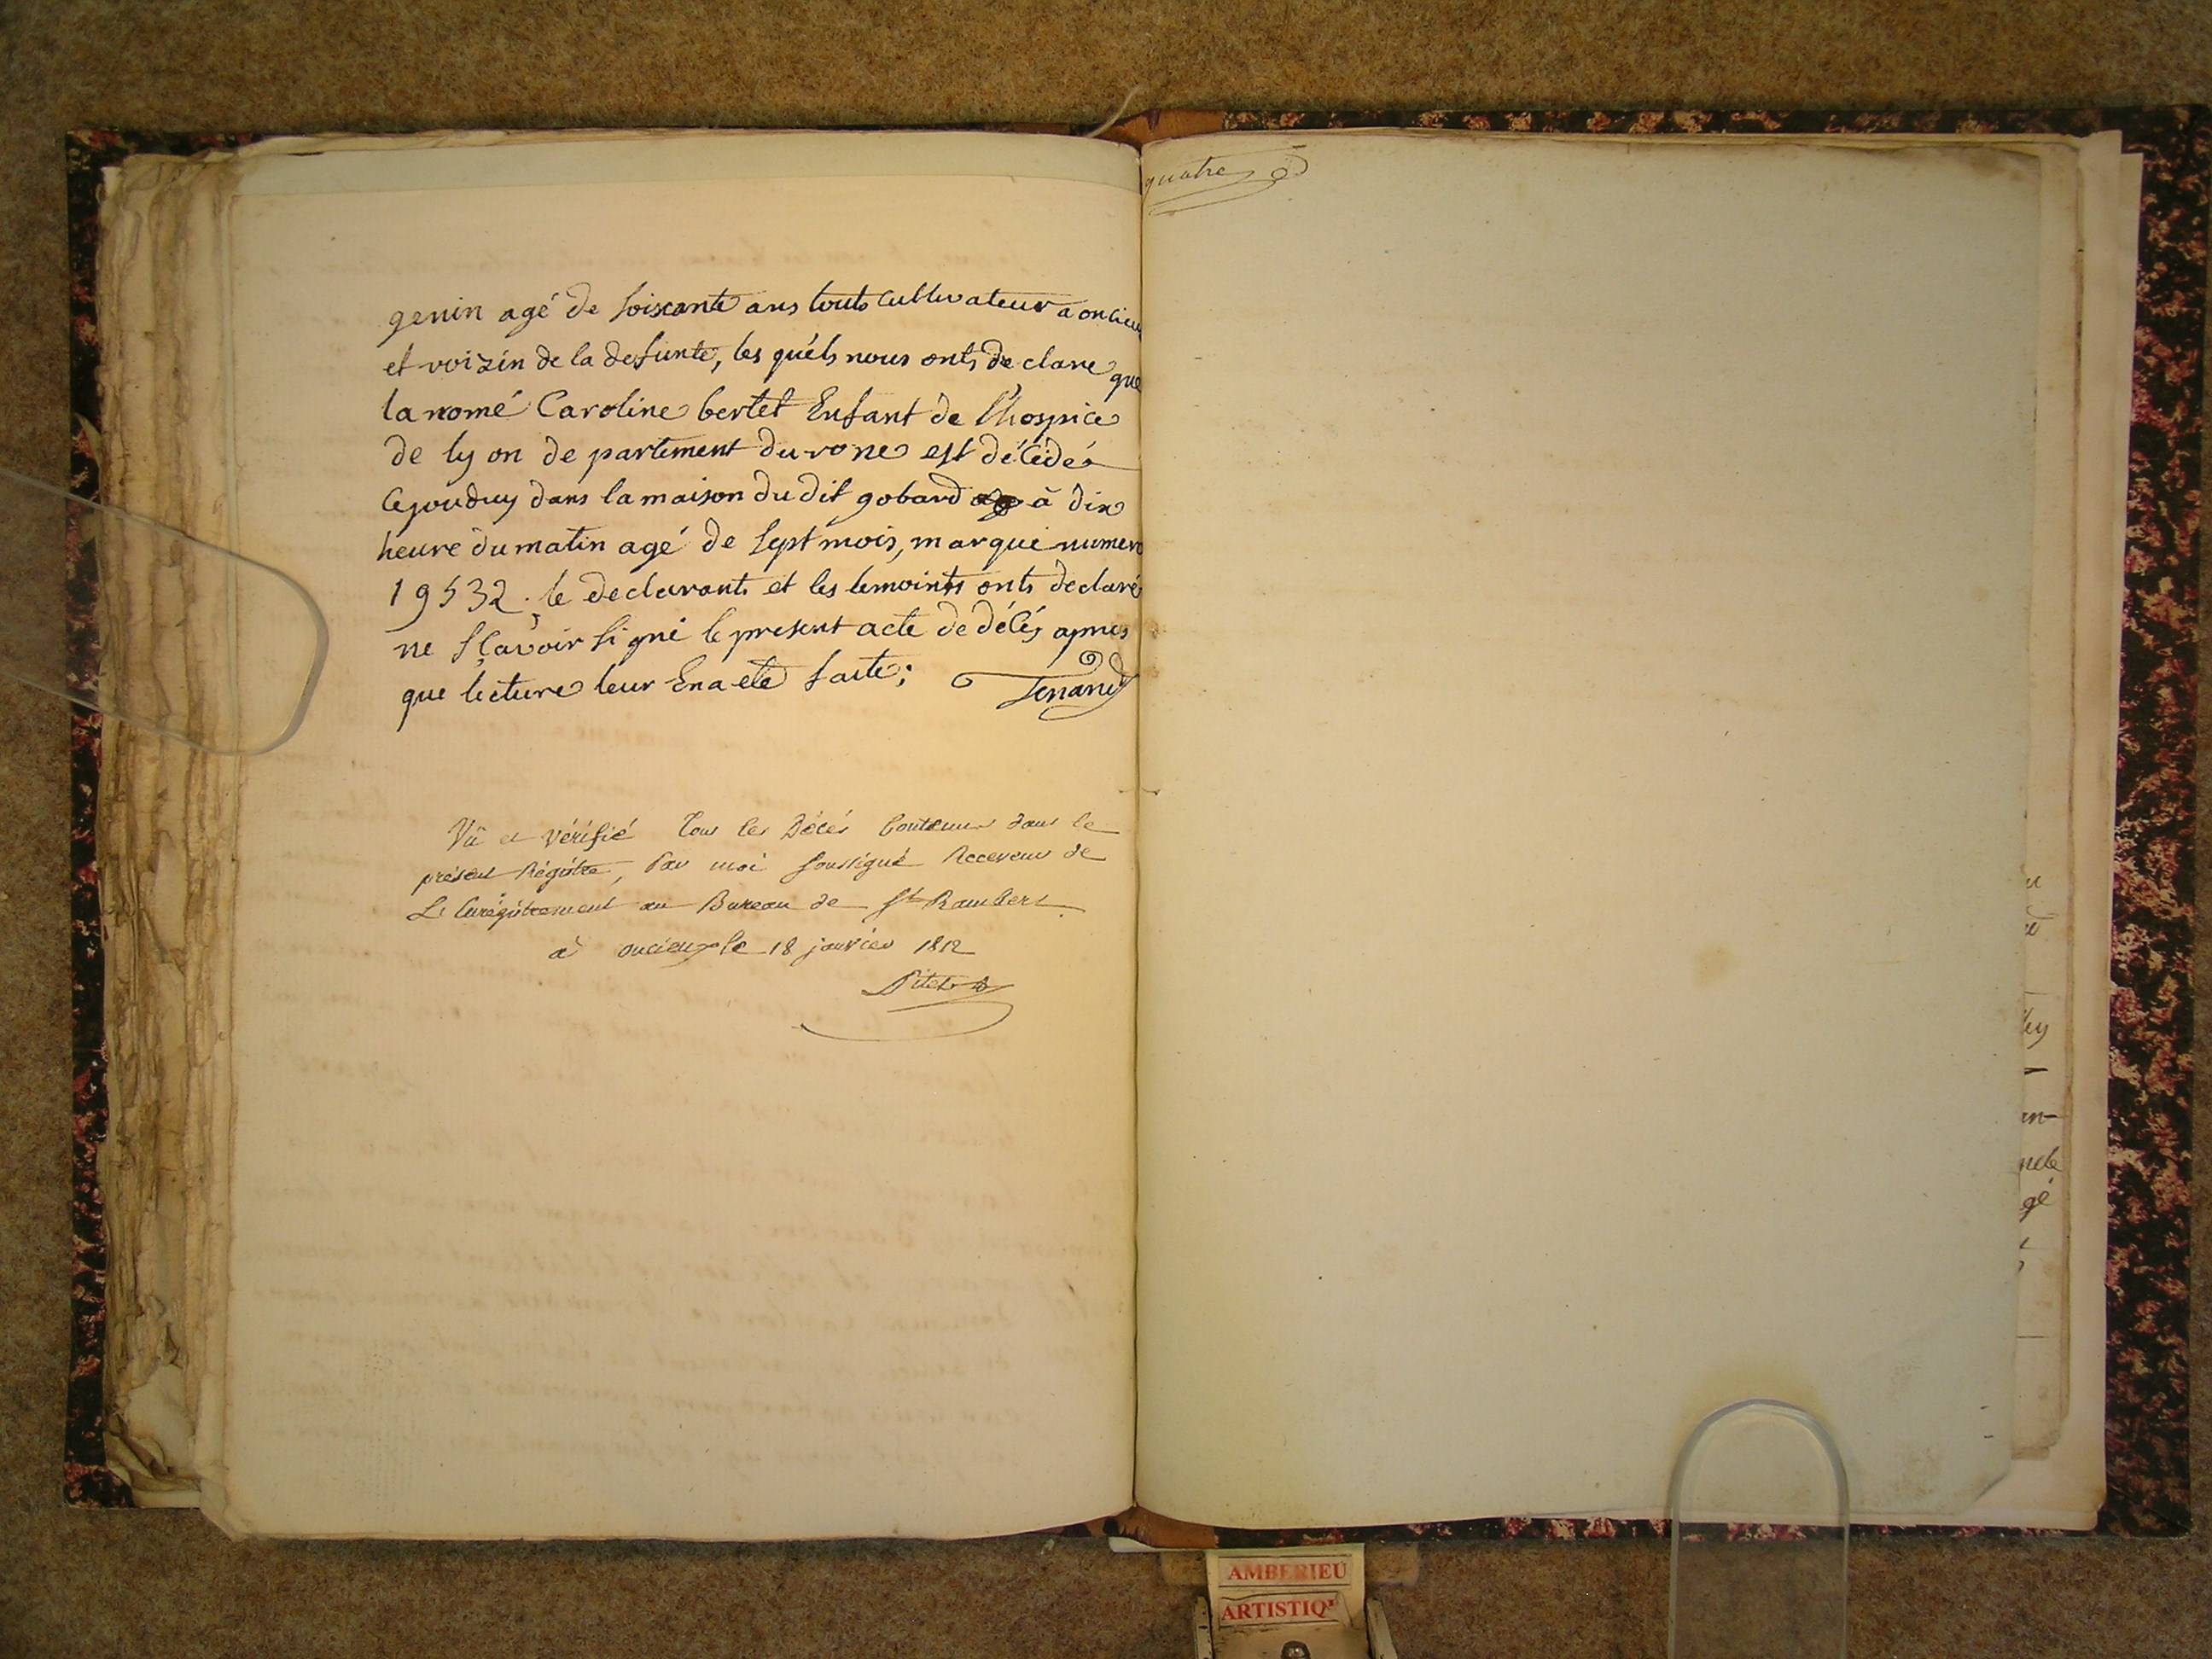 genin agé de soiscante ans touts cultivateur a oncieu
et voizin de la defunte, les quels nous onts de clare que
la nomé Caroline bertet Enfant de l'hospice
de ly on de partement du rone est décédé
Cejourduy dans la maison du dit gobard à dix
heure du matin agé de sept mois, marqué numero
19532. le declarants et les temoints onts declaré
ne sçavoir signé le present acte de décés apres
que lecture leur En a eté faite;
Tenand
Vû et vérifié tous les Décés Contenus dans le
présent Régistre, Par moi soussigné Receveur de
L'Enrégistrement au Bureau de St Rambert
à oncieu le 18 janvier 1812
quatre
AMBERIEU
ARTISTIQ